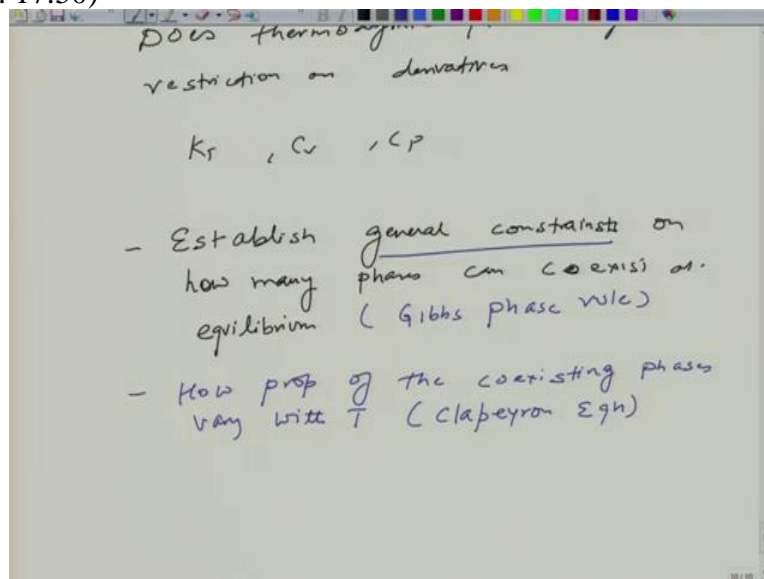 : 17:50)
Does
restriction on derivatives
KT , Cv , CP
- Establish general constrainsts on
how many phases can coexist at
equilibrium ( Gibbs phase rule)
- How prop of the coexisting phases
vary with T ( Clapeyron Eqn)
10/10